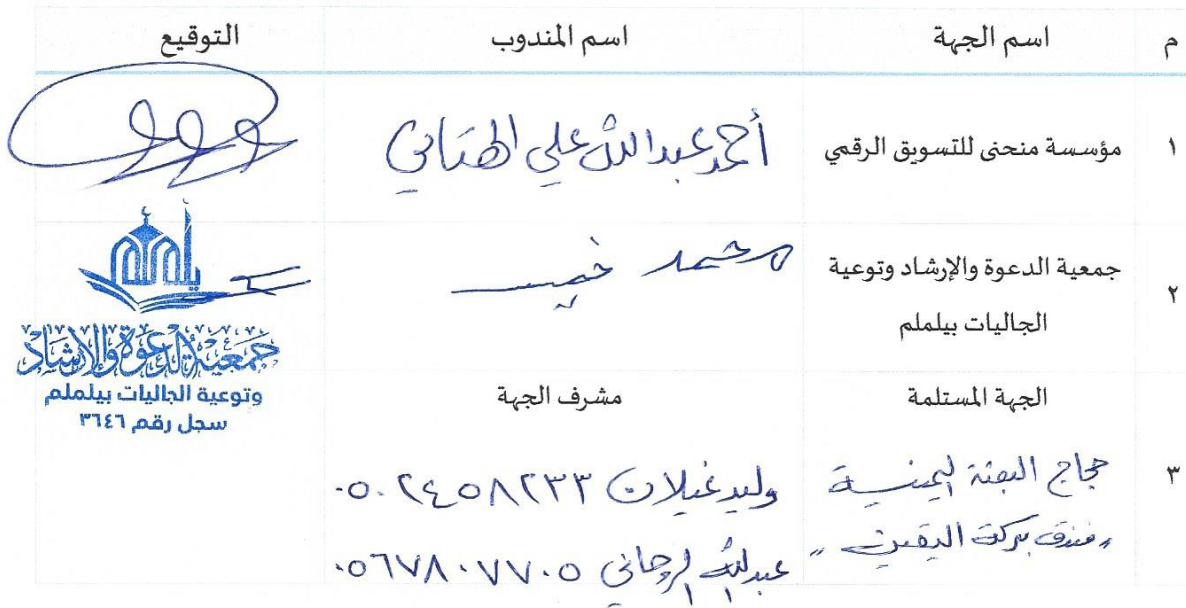 م اسم الجهة اسم المندوب التوقيع
١ مؤسسة منحنى للتسويق الرقمي أحمد عبدالله علي الهتاري
٢ جمعية الدعوة والإرشاد وتوعية الجاليات بيلملم محمد خميس
يلملم
جمعية الدعوة والإرشاد
وتوعية الجاليات بيلملم
سجل رقم ٣٦٤٦
الجهة المستلمة مشرف الجهة
٣ حجاج البعثة اليمنية وليد غيلان ٠٥٠٢٤٥٨٢٣٣
"فندق بركة اليقين" عبدالله ٠٥٦٧٨٠٧٧٠٥